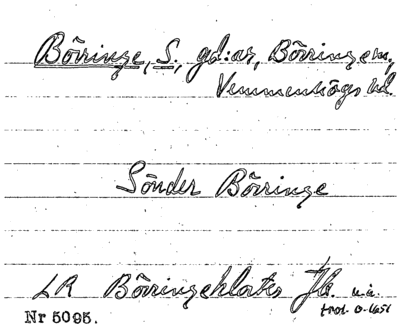 Börringe, S., gd:ar, Börringe sn,
Vemmenhögs hd.
Sönder Börringe
LR Börringekloster Jb.
Nr 5095.